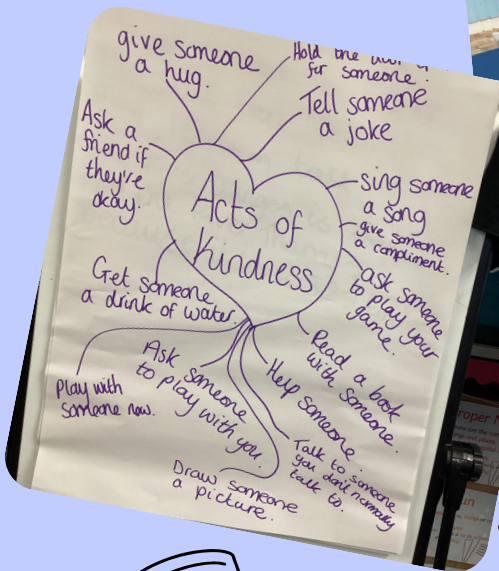 give someone
a hug.
Hold the door
for someone.
Tell someone
a joke
Ask a
friend if
they're
okay.
Acts of
kindness
sing someone
a song
give someone
a compliment.
ask someone
to play your
game.
Get someone
a drink of water.
Read a book
with someone.
Play with
someone new.
Ask someone
to play with you.
Help someone.
Talk to someone
you don't normally
talk to.
Draw someone
a picture.